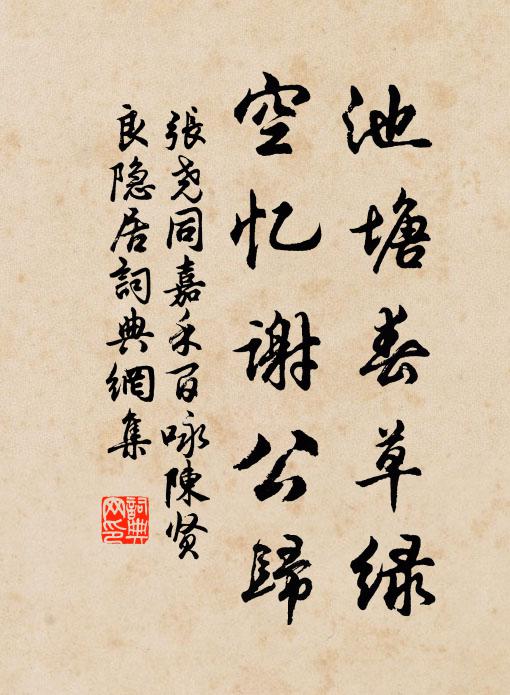 池塘春草绿
空忆谢公歸
張堯同嘉禾百咏陳贤
良隐居詞典網集
詞典
网印